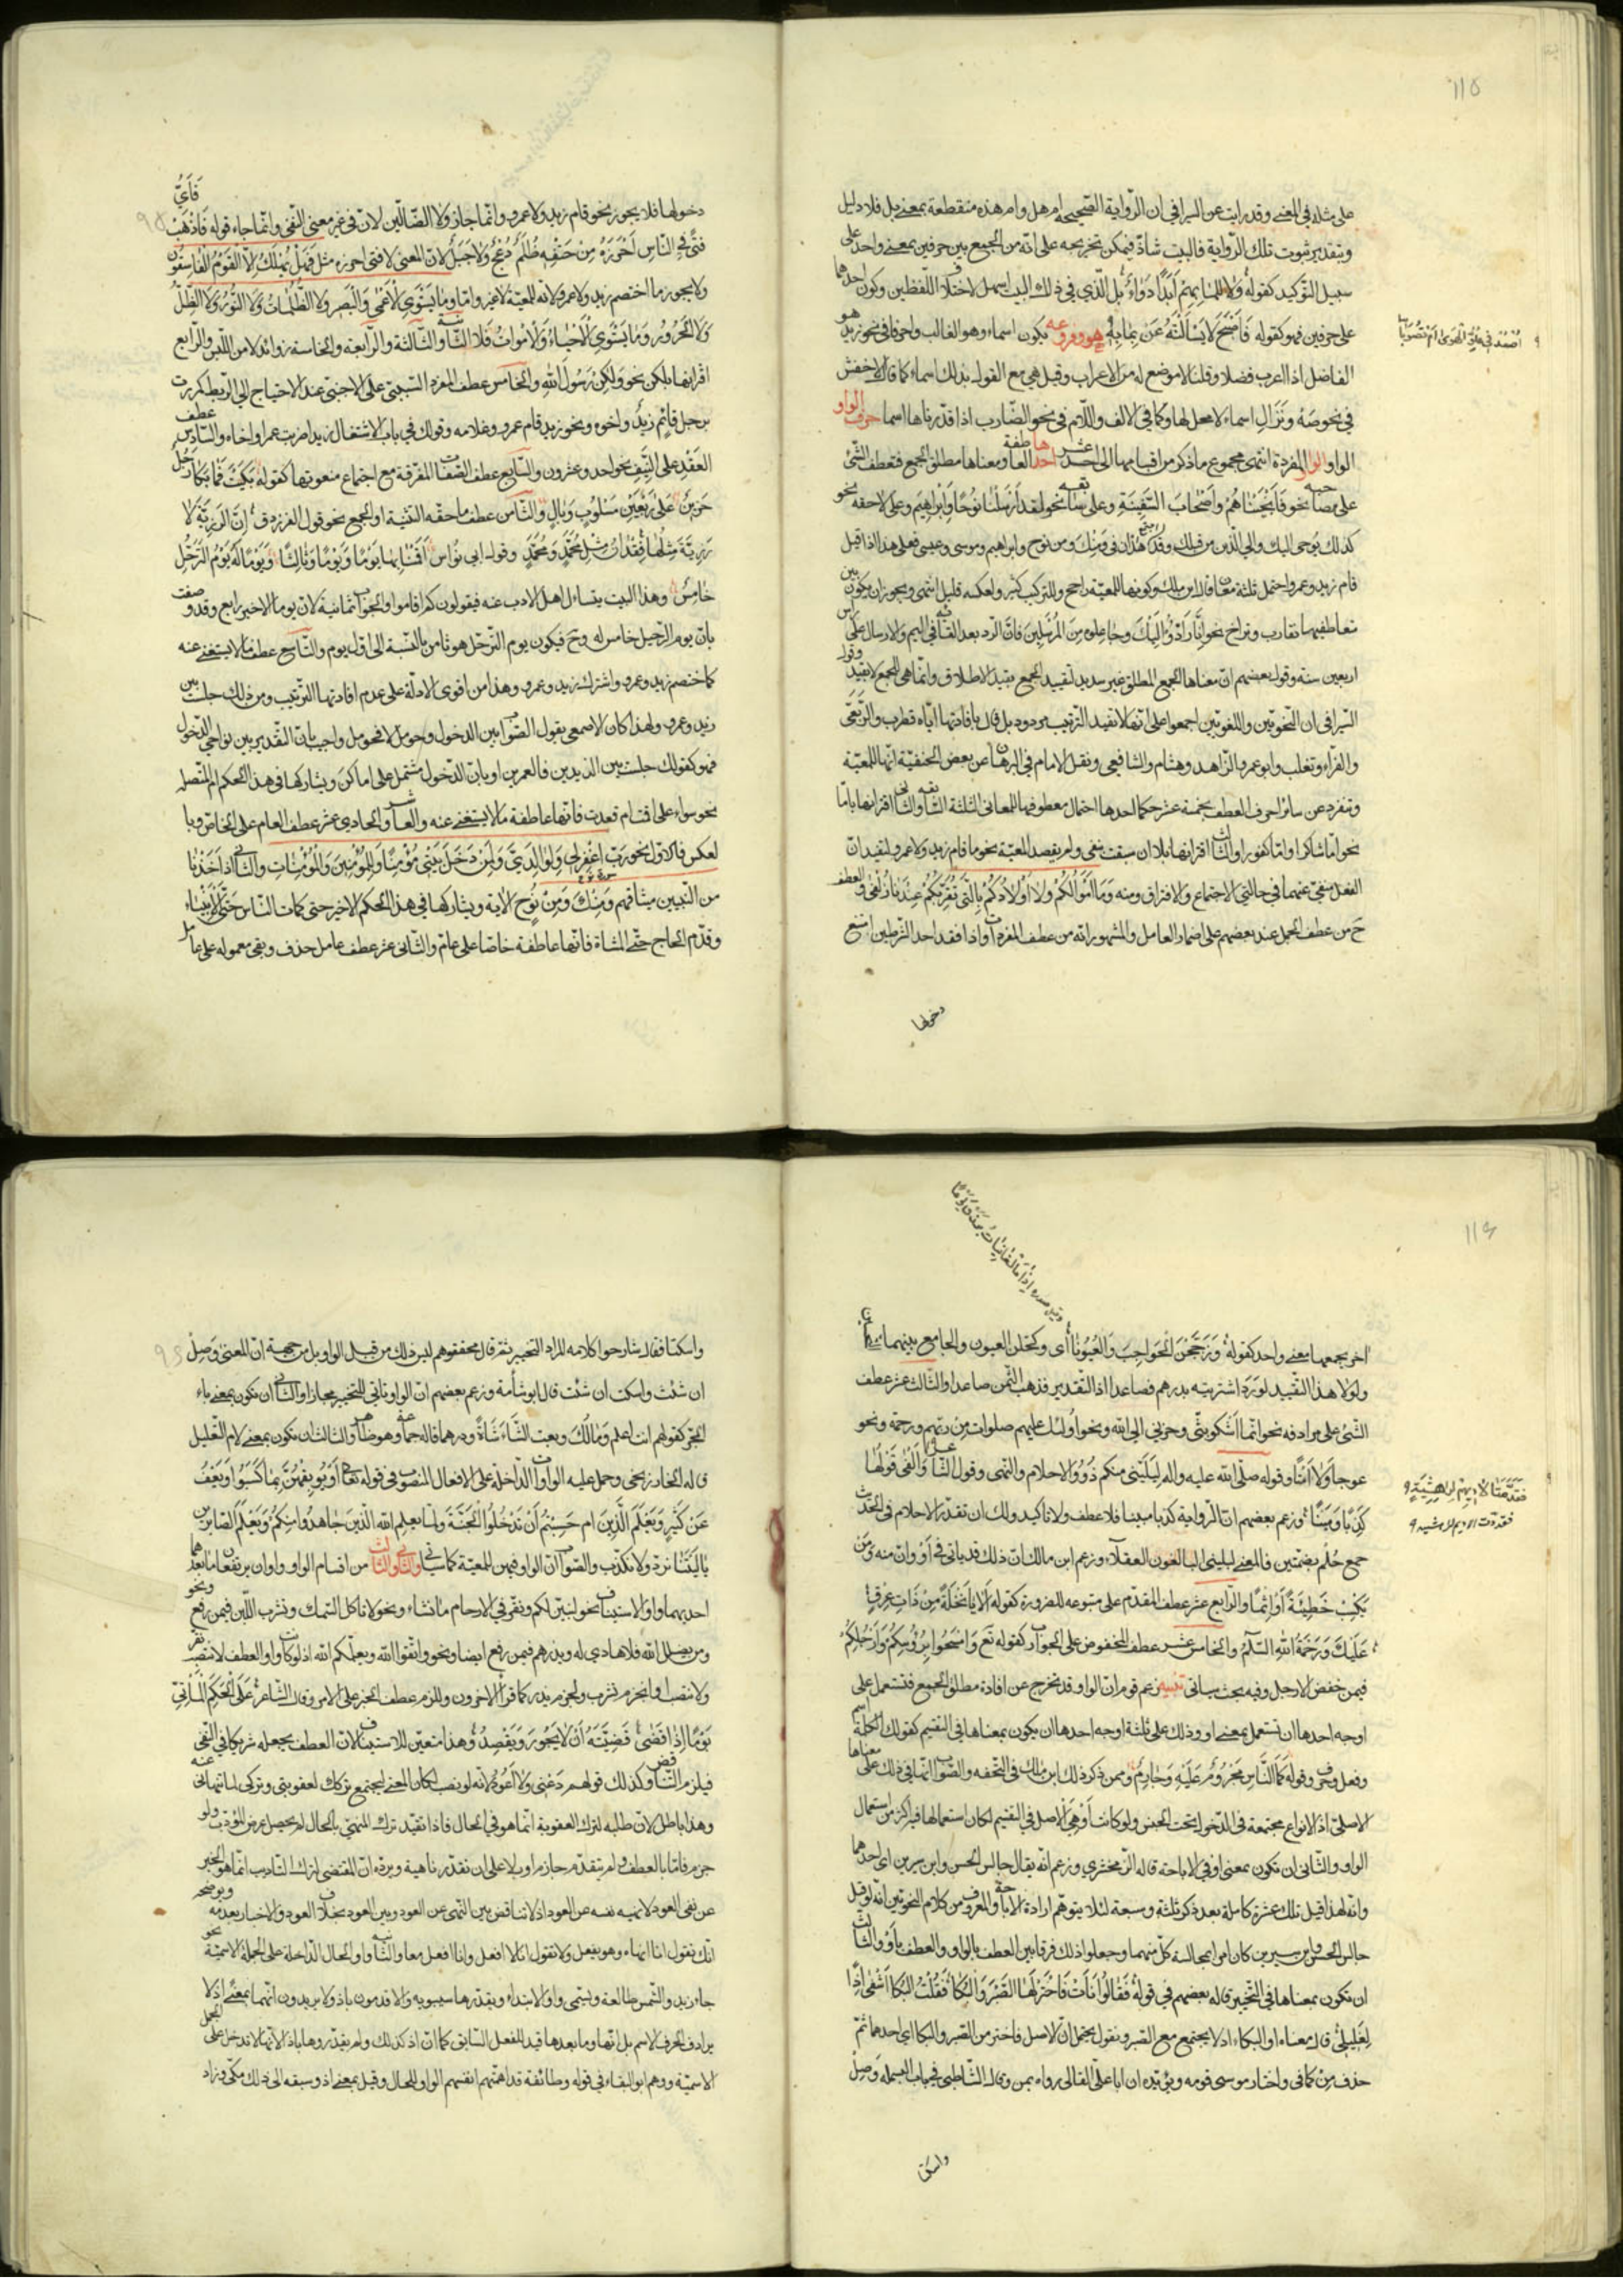 ١١٥
على مثله في المغني وقد رايت عن السيرافي ان الرواية الصحيحة ام هل وام هذه منقطعة بمعنى بل فلا دليل
وبتقدير ثبوت تلك الرواية فالبيت شاذ فيمكن تخريجه على انه من الجمع بين حرفين بمعنى واحد على
سبيل التوكيد كقوله وَلا لِلِما بِهِم أَبَداً دَواءُ بل الذي في ذلك البيت اسهل لاختلاف اللفظين وكون احدهما
على حرفين فهو كقوله فَأَصْبَحَ لا يَسْأَلْنَهُ عَنْ بِما بِهِ هو وفروعه تكون اسماء وهو الغالب واحرفا في نحو زيد هو
الفاضل اذا اعرب فضلا وقلنا لا موضع له من الاعراب وقيل هي مع القول بذلك اسماء كما قال الاخفش
في نحو صَه ونَزالِ اسماء لا محل لها وكما في الالف واللام في نحو الضارب اذا قدرناها اسما حرف الواو
الواو الواو المفردة انتهى مجموع ما ذكر من اقسامها الى احد عشر احدها العاطفة ومعناها مطلق الجمع فتعطف الشئ
على مصاحبه نحو فَأَنْجَيْناهُ وَأَصْحابَ السَّفِينَةِ وعلى سابقه نحو لقد أَرْسَلْنا نُوحًا وَإِبْراهِيمَ وعلى لاحقه نحو
كذلك يُوحى اليك والى الذين من قبلك وقد اجتمع هذان في ومِنْكَ ومن نوح وابراهيم وموسى وعيسى فعلى هذا اذا قيل
قام زيد وعمرو احتمل ثلثة معان قال ابن مالك وكونها للمعية راجح وللترتيب كثير ولعكسه قليل انتهى ويجوز ان يكون بين
متعاطفيها تقارب وتراخ نحو إِنَّا رَادُّوهُ إِلَيْكَ وجاعلوه مِنَ المُرْسَلِينَ فان الرد بعد القائه في اليم والارسال على راس
اربعين سنة وقول بعضهم ان معناها الجمع المطلق غير سديد لتقييد الجمع بقيد الاطلاق وانما هي للجمع لا بقيد وقول
السيرافي ان النحويين واللغويين اجمعوا على انها لا تفيد الترتيب مردود بل قال بافادتها اياه قطرب والربعى
والفراء وثعلب وابو عمرو الزاهد وهشام والشافعي ونقل الامام في البرهان عن بعض الحنفية انها للمعية
وتنفرد عن سائر احرف العطف بخمسة عشر حكما احدها احتمال معطوفها للمعاني الثلثة السابقة والثاني اقترانها باما
نحو اما شاكرا واما كفورا والثالث اقترانها بلا ان سبقت بنفي ولم يقصد المعية نحو ما قام زيد ولا عمرو لتفيد ان
الفعل منفي عنهما في حالتي الاجتماع والافتراق ومنه وَما أَمْوالُكُمْ وَلا أَوْلادُكُمْ بِالَّتِي تُقَرِّبُكُمْ عِنْدَنا زُلْفى والعطف
ح من عطف الجمل عند بعضهم على اضمار العامل والمشهور انه من عطف المفردات واذا فقد احد الشرطين امتنع
دخولها
أَصَعَّدَ في عُلْوِ الهَوى أَمْ تَصَوَّبا
دخولها فلا يجوز نحو قام زيد ولا عمرو وانما جاز ولا الضالين لان في غير معنى النفي وانما جاء قوله فَاذْهَبْ فَأَيُّ
فَتىً فِي النّاسِ أَحْرَزَهُ مِنْ حَتْفِهِ ظُلَمٌ دُعْجٌ وَلا جَبَلُ لان المعنى لا فتى احرزه مثل فَهَلْ يُهْلَكُ إِلاَّ القَوْمُ الفاسِقُونَ
ولا يجوز ما اختصم زيد ولا عمرو لانه للمعية لا غير واما وَما يَسْتَوِى الأَعْمى وَالْبَصِيرُ ولا الظُّلُماتُ وَلا النُّورُ وَلا الظِّلُّ
وَلا الحَرُورُ وَما يَسْتَوِى الأَحْياءُ وَلا الأَمْواتُ فلا الثانية والثالثة والرابعة والخامسة زوائد لامن اللبس والرابع
اقترانها بلكن نحو وَلكِنْ رَسُولَ اللهِ والخامس عطف المفرد السببي على الاجنبي عند الاحتياج الى الربط كمررت
برجل قائم زيد واخوه ونحو زيد قام عمرو وغلامه وقولك في باب الاشتغال زيدا ضربت عمرا واخاه والسادس عطف
العقد على النيف نحو احد وعشرون والسابع عطف الصفات المفرقة مع اجتماع منعوتها كقوله بَكَيْتُ وَما بُكا رَجُلٍ
حَزِينٍ عَلى رَبْعَيْنِ مَسْلُوبٍ وَبالِ والثامن عطف ما حقه التثنية او الجمع نحو قول الفرزدق إِنَّ الرَّزِيَّةَ لا
رَزِيَّةَ مِثْلُها فِقْدانُ مِثْلِ مُحَمَّدٍ وَمُحَمَّدِ وقول ابى نُواس أَقَمْنا بِها يَوْمًا وَيَوْمًا وَثالِثًا وَيَوْمًا لَهُ يَوْمُ التَّرَحُّلِ
خامِسُ وهذا البيت يتساءل اهل الادب عنه فيقولون كم اقاموا والجواب ثمانية لان يوما الاخير رابع وقد وصف
بان يوم الرحيل خامس له وح فيكون يوم الترحل هو ثامن بالنسبة الى اول يوم والتاسع عطف ما لا يستغنى عنه
كاختصم زيد وعمرو واشترك زيد وعمرو وهذا من اقوى الادلة على عدم افادتها الترتيب ومن ذلك جلست بين
زيد وعمرو ولهذا كان الاصمعى يقول الصواب بين الدخول وحومل لا فحومل واجيب بان التقدير بين نواحى الدخول
فهو كقولك جلست بين الزيدين فالعمرين او بان الدخول مشتمل على اماكن ويشاركها في هذا الحكم ام المتصلة
نحو سواء على اقمت ام قعدت فانها عاطفة ما لا يستغنى عنه والعاشر والحادى عشر عطف العام على الخاص وبا
لعكس فالاول نحو رَبِّ اغْفِرْ لِي وَلِوالِدَيَّ وَلِمَنْ دَخَلَ بَيْتِي مُؤْمِنًا وَلِلْمُؤْمِنِينَ وَالمُؤْمِناتِ والثاني اذ أَخَذْنا
من النبيين ميثاقهم وَمِنْكَ وَمِنْ نُوحٍ الاية ويشاركها في هذا الحكم الاخير حتى كمات الناس حَتَّى الأَنْبِياءُ
وقدم الحاج حتى المشاة فانها عاطفة خاصا على عام والثاني عشر عطف عامل حذف وبقى معموله على عامل
١١٦
اخر يجمعهما معنى واحد كقوله وَزَجَّجْنَ الحَواجِبَ وَالعُيُونا أى وكحلن العيون والجامع بينهما التحسين
ولولا هذا التقييد لورد اشتريته بدرهم فصاعدا اذ التقدير فذهب الثمن صاعدا والثالث عشر عطف
الشئ على مرادفه نحو انما أشكو بثى وحزني الى الله ونحو أولئك عليهم صلوات مِنْ ربهم ورحمة ونحو
عوجا وَلا أَمْتًا وقوله صلى الله عليه واله لِيَلِيَنِي منكم ذَوُو الاحلام والنهى وقول الشاعر وَأَلْفى قَوْلَها
كَذِبًا وَمَيْنا وزعم بعضهم ان الرواية كذبا مبينا فلا عطف ولا تاكيد ولك ان تقدر الاحلام في الحديث
جمع حُلُم بضمتين فالمعنى ليليني البالغون العقلاء وزعم ابن مالك ان ذلك قد ياتي في أو وان منه وَمَن
يَكْسِبْ خَطِيئَةً أَوْ إِثْمًا والرابع عشر عطف المقدم على متبوعه للضرورة كقوله أَلا يا نَخْلَةً مِنْ ذاتِ عِرْقٍ
عَلَيْكِ وَرَحْمَةُ اللهِ السَّلامُ والخامس عشر عطف المخفوض على الجوار كقوله تع وَامْسَحُوا بِرُؤُسِكُمْ وَأَرْجُلِكُمْ
فيمن خفض الارجل وفيه بحث سياتى تنبيه زعم قوم ان الواو قد تخرج عن افادة مطلق الجمع فتستعمل على
اوجه احدها ان تستعمل بمعنى او وذلك على ثلثة اوجه احدها ان يكون بمعناها في التقسيم كقولك الكلمة اسم
وفعل وحرف وقوله كَما النّاسِ مَجْرُومٌ عَلَيْهِ وَجارِمُ وممن ذكر ذلك ابن مالك في التحفة والصواب انها في ذلك على معناها
الاصلي اذ الانواع مجتمعة في الدخول تحت الجنس ولو كانت أَوْ هِيَ الاصل في التقسيم لكان استعمالها فيه اكثر من استعمال
الواو والثاني ان تكون بمعنى او في الاباحة قاله الزمخشري وزعم انه يقال جالس الحسن وابن سيرين اى احدهما
وانه لهذا قيل تلك عشرة كاملة بعد ذكر ثلثة وسبعة لئلا يتوهم ارادة الاباحة والمعروف من كلام النحويين انه لو قيل
جالس الحسن وابن سيرين كان امرا بمجالسة كل منهما وجعلوا ذلك فرقا بين العطف بالواو والعطف بأو والثالث
ان تكون بمعناها في التخيير قاله بعضهم في قوله فَقالُوا نَأَتْ فَاخْتَرْ لَها الصَّبْرَ وَالبُكا فَقُلْتُ البُكا أَشْفى إِذًا
لِغَلِيلِي قال معناه او البكاء اذ لا يجتمع مع الصبر ونقول يحتمل ان الاصل فاختر من الصبر والبكا اى احدهما ثم
حذف مِنْ كما في واختار موسى قومه ويؤيده ان ابا على القالى رواه بمن وقال الشاطبي في باب البسملة وَصِلْ
واسكتا
فَقَدَّدَتِ الأَدِيمَ لِراهِشَيْهِ
واسكتا فقال شارحوا كلامه المراد التخيير ثم قال محققوهم ليس ذلك من قبل الواو بل من جهة ان المعنى وَصِلْ
ان شئت واسكت ان شئت قال ابو شامة وزعم بعضهم ان الواو تاتى للتخيير مجازا والثاني ان تكون بمعنى باء
الجر كقولهم انت اعلم وَمالُكَ وبعت الشّاءَ شاةً ودرهما قاله جماعة وهو ظاهر والثالث ان تكون بمعنى لام التعليل
قاله الخارزنجى وحمل عليه الواوات الداخلة على الافعال المنصوبة في قوله تعالى أَوْ يُوبِقْهُنَّ بِما كَسَبُوا وَيَعْفُ
عَنْ كَثِيرٍ وَيَعْلَمَ الَّذِينَ ام حَسِبْتُمْ أَنْ تَدْخُلُوا الجَنَّةَ وَلَمَّا يعلم الله الذين جاهَدُوا مِنْكُمْ وَيَعْلَمَ الصّابرين
يا لَيْتَنا نرد ولا نكذب والصواب ان الواو فيهن للمعية كما سياتي والثاني والثالث من اقسام الواو واوان يرتفع ما بعدهما
احديهما واو الاستيناف نحو لنبين لكم ونقر في الارحام ما نشاء ونحو لا تاكل السمك وتشرب اللبن فيمن رفع ونحو
ومن يضلل الله فلا هادي له ويذرهم فيمن رفع ايضا ونحو واتقوا الله ويعلمكم الله اذ لو كانت واو العطف لانتصب نقر
ولانتصب او انجزم تشرب ولجزم يذر كما قرا الاخرون وللزم عطف الخبر على الامر وقال الشاعر عَلى الحَكَمِ المَأْتِيِّ
يَوْمًا إِذا قَضى قَضِيَّتَهُ أَنْ لا يَجُورَ وَيَقْصِدُ وهذا متعين للاستيناف لان العطف يجعله شريكا في النفي
فيلزم التناقض وكذلك قولهم دَعْنِي وَلا أَعُودُ لانه لو نصب لكان المعنى ليجتمع تركك لعقوبتي وتركى لما تنهاني عنه
وهذا باطل لان طلبه لترك العقوبة انما هو في الحال فاذا تقيد ترك المنهى بالحال لم يحصل غرض المؤدب ولو
جزم فاما بالعطف ولم يتقدم جازم او بلا على ان تقدر ناهية ويرده ان المقتضى لترك التاديب انما هو الخبر
عن نفى العود لا نهيه نفسه عن العود اذ لا تناقض بين النهى عن العود وبين العود بخلاف العود والاخبار بعدمه ويوضحه
انك تقول انا انهاه وهو يفعل ولا تقول انا لا افعل وانا افعل معا والثانية واو الحال الداخلة على الجملة الاسمية نحو
جاء زيد والشمس طالعة ويسمى واو الابتداء ويقدرها سيبويه والاقدمون باذ ولا يريدون انها بمعنى اذ لا
يرادف الحرف الاسم بل انها وما بعدها قيد للفعل السابق كما ان اذ كذلك ولم يقدروها باذا لانها لا تدخل على الجمل
الاسمية ووهم ابو البقاء في قوله وطائفة قد اهمتهم انفسهم الواو للحال وقيل بمعنى اذ وسبقه الى ذلك مكى وزاد